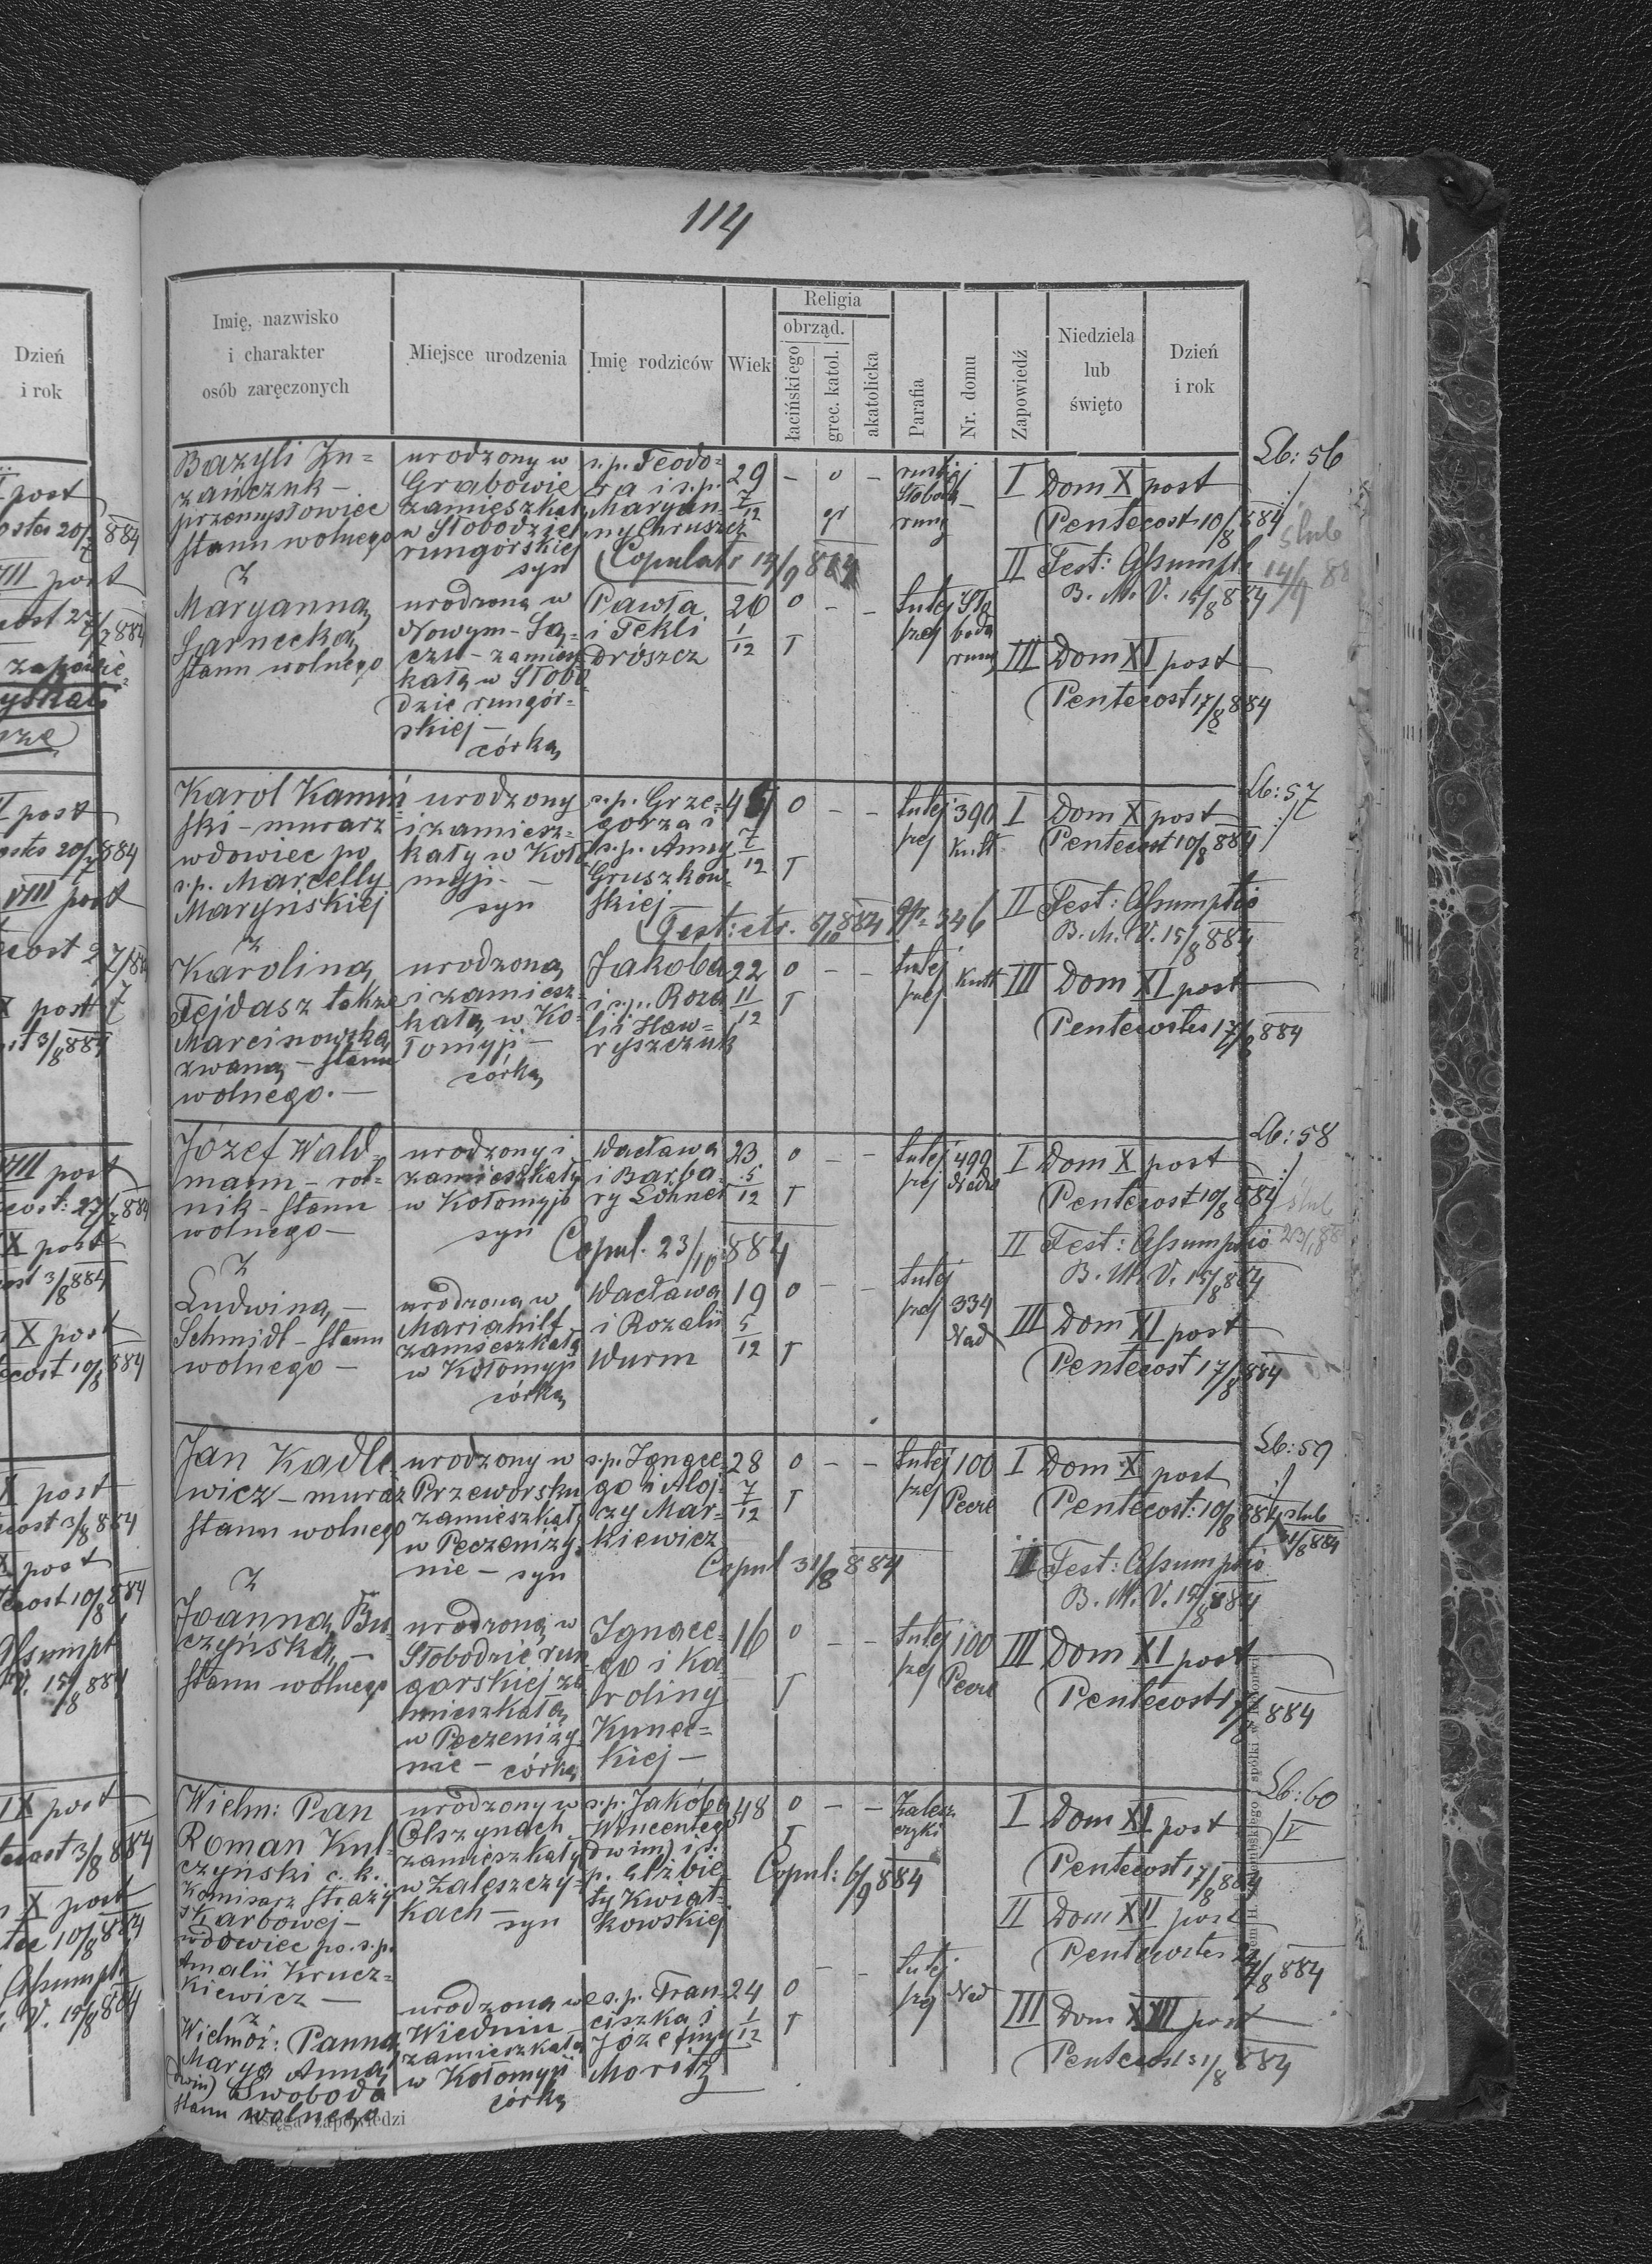 114
Imię, nazwisko
i charakter
osób zaręczonych
Miejsce urodzenia
Imię rodziców
Wiek
Religia
obrząd.
łacińskiego
grec. katol.
akatolicka
Parafia
Nr. domu
Zapowiedź
Niedziela
lub
święto
Dzień
i rok
Lb: 56
Bazyli Zu=
zańczuk —
przemysłowiec
stanu wolnego
z
Maryanną
Sarnecką
stanu wolnego
urodzony w
Grabowie
zamieszkały
w Słobodzie
rungórskiej
syn
urodzoną w
Nowym-Są=
czu - zamiesz
kałą w Słobo
dzie rungór=
skiej —
córką
s.p. Teodo=
ra i s.p.
Maryan=
ny Chruszcz
Copulati 14/9 884
Pawła
i Tekli
Drószcz
29 7/12
26 1/12
tutej
szej
Sło
boda
rung
I Dom X post
Pentecost 10/8 884
II Fest: Assumpti
B. M. V. 15/8 884
III Dom XI post
Pentecost 17/8 884
ślub
14/9 88
Lb: 57
Karol Kamiń
ski - murarz
wdowiec po
s.p. Marcelly
Maryńskiej
z
Karoliną
Fejdasz także
Marcinowską
zwaną - stanu
wolnego. —
urodzony
i zamiesz=
kały w Koło
myji —
syn
urodzoną
i zamiesz=
kałą w Ko=
łomyji —
córką
s.p. Grze=
gorza i
s.p. Anny
Gruszkow=
skiej —
Jakóba
i s.p. Roza
lii Haw=
ryszczuk
7/12
22 11/12
tutej
szej
390
Kutt
346
tutej
szej
Kutt
I Dom X post
Pentecost 10/8 884
II Fest: Assumptio
B. M. V. 15/8 884
III Dom XI post
Pentecostes 17/8 884
Lb: 58
Józef Wald=
mann - rol=
nik - stanu
wolnego —
z
Ludwiną —
Schmidt - stanu
wolnego —
urodzony i
zamieszkały
w Kołomyji
syn
urodzoną w
Mariahilf
zamieszkałą
w Kołomyji
córką
Wacława
i Barba=
ry Lohner
Copul. 23/10 884
Wacława
i Rozalii
Wurm
23 5/12
19 5/12
tutej
szej
499
tutej
szej
334
Nad
I Dom X post
Pentecost 10/8 884
II Fest: Assumptio
B. M. V. 15/8 884
III Dom XI post
Pentecost 17/8 884
ślub
Lb: 59
Jan Kadle
wicz - murarz
stanu wolnego
z
Joanną Bu=
czyńską, —
stanu wolnego
urodzony w
Przeworsku
zamieszkały
w Peczeniży=
nie - syn
urodzoną w
Słobodzie run
garskiej za
mieszkałą
w Peczeniży
nie - córką
s.p. Ignace=
go i Aloj=
zy Mar=
kiewicz
Copul 31/8 884
Ignace=
go i Ka
roliny
Kunec=
kiej —
28 7/12
16
tutej
szej
100
Pecze
tutej
szej
100
Pecze
I Dom X post
Pentecost: 10/8 884
II Fest: Assumptio
B. M. V. 15/8 884
III Dom XI post
Pentecost 17/8 884
ślub
31/8 884
Lb: 60
Wielm: Pan
Roman Kul=
czyński c. k.
Komisarz straży
skarbowej —
wdowiec po s.p.
Amalii Krucz=
kiewicz —
z
Wielmoż: Panną
Maryą Anną
(dwim) Swoboda
stanu wolnego
urodzony w
Olszynach
zamieszkały
w Zaleszczy=
kach —
syn
urodzoną we
Wiedniu
zamieszkałą
w Kołomyji
córką
s.p. Jakóba
Wincentego
(dwim) i s.
p. Elżbie
ty Kwiat=
kowskiej
Copul: 6/9 884
s.p. Fran=
ciszka i
Józefiny
Moritz
48
24 1/12
Zalesz
czyki
tutej
szej
Nad
I Dom XI post
Pentecost 17/8 884
II Dom XII post
Pentecostes 24/8 884
III Dom XIII post
Pentecost 31/8 884
Księga zapowiedzi